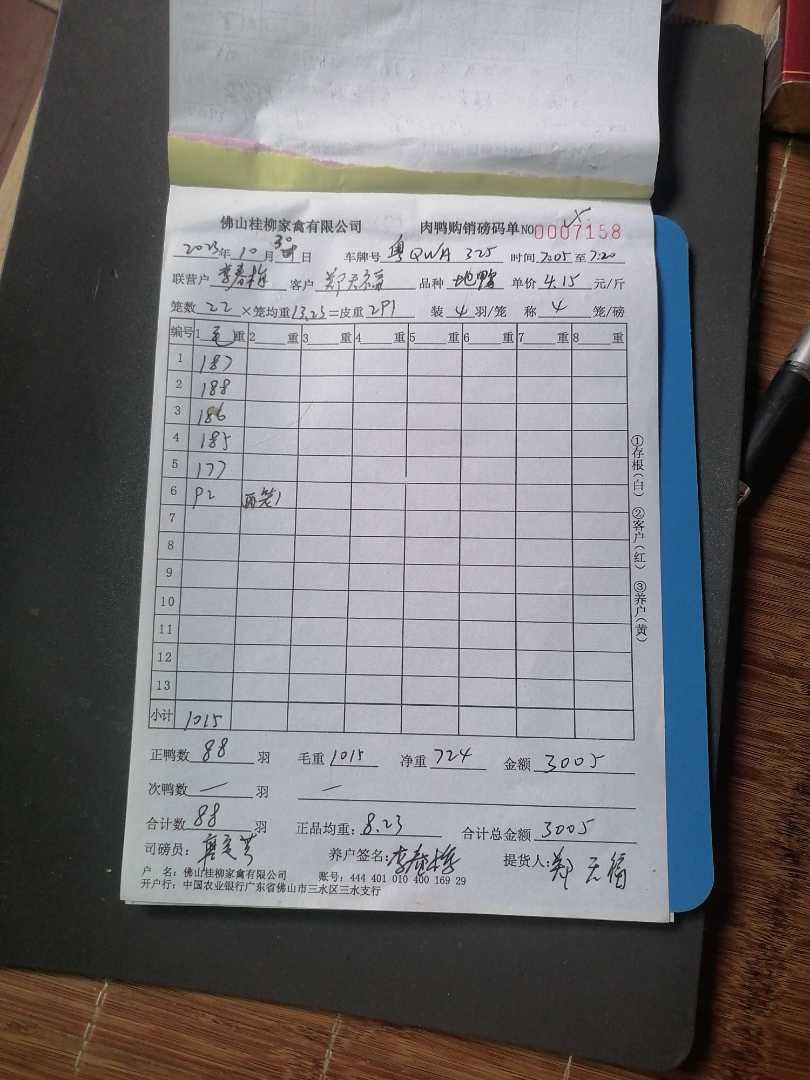 佛山桂柳家禽有限公司 肉鸭购销磅码单 NO 0007158
2023年10月30日 车牌号 粤QWA 325 时间 7:05至7:20
联营户 李春梅 客户 郑天福 品种 地鸭 单价 4.15 元/斤
笼数 22 ×笼均重 13.23 =皮重 291 装 4 羽/笼 称 4 笼/磅
编号 1 毛 重 2 重 3 重 4 重 5 重 6 重 7 重 8 重
1 187
2 188
3 186
4 185
5 177
6 92 两笼
7
8
9
10
11
12
13
小计 1015
①存根(白) ②客户(红) ③养户(黄)
正鸭数 88 羽 毛重 1015 净重 724 金额 3005
次鸭数 — 羽 —
合计数 88 羽 正品均重: 8.23 合计总金额 3005
司磅员: 养户签名: 李春梅 提货人: 郑天福
户 名: 佛山桂柳家禽有限公司 账号: 444 401 010 400 169 29
开户行: 中国农业银行广东省佛山市三水区三水支行